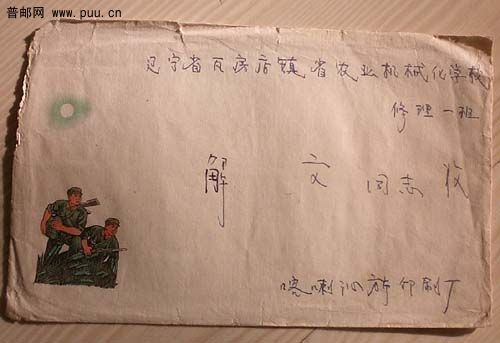 普邮网 www.puu.cn
辽宁省瓦房店镇省农业机械化学校
修理一班
解文同志收
喀喇沁旗印刷厂